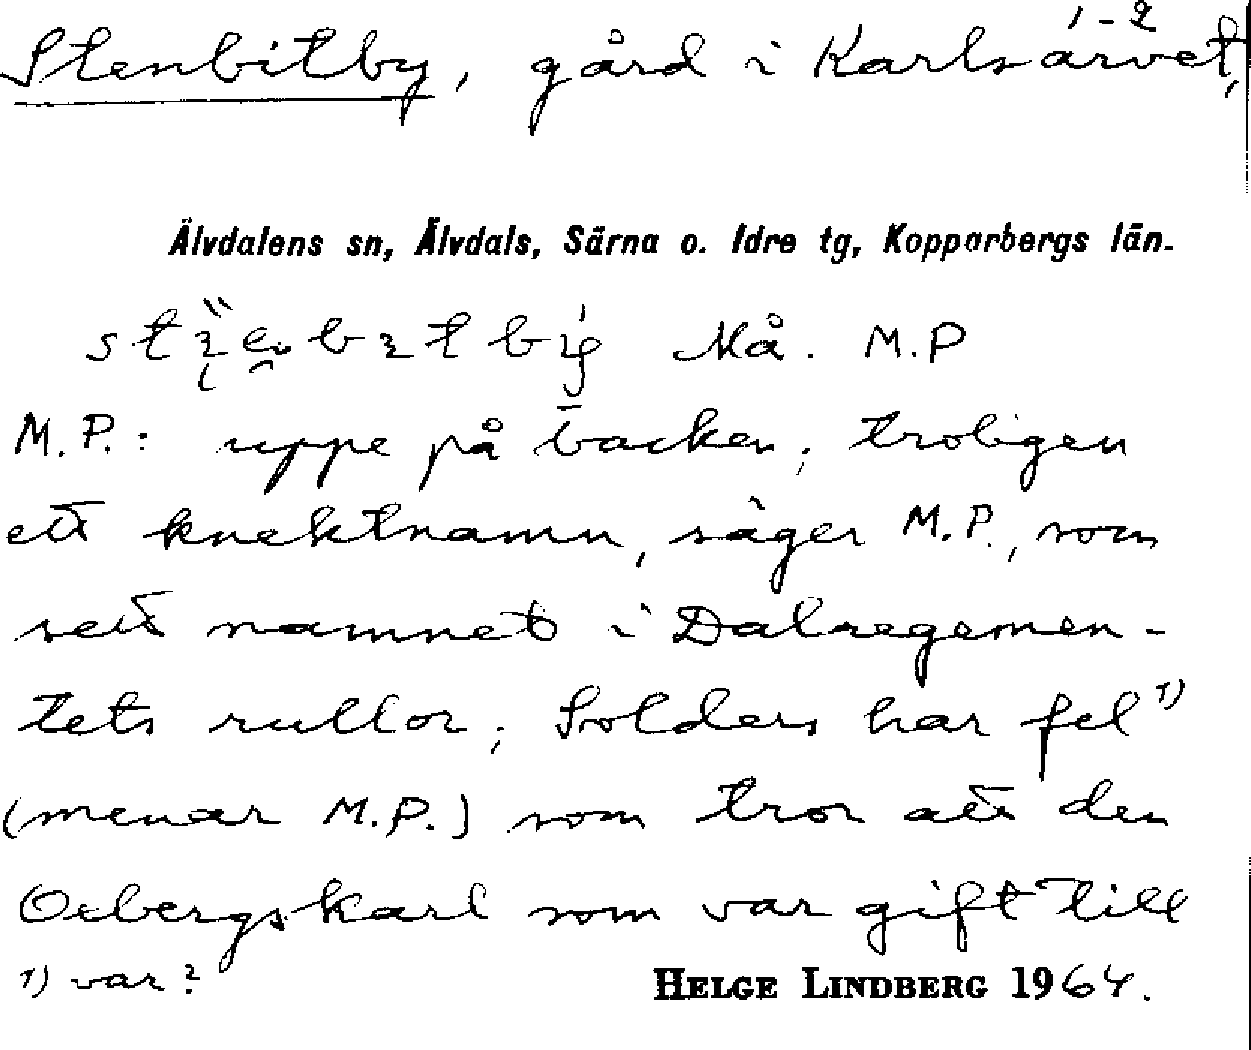 1-2
Stenbitby, gård i Karlsarvet,
Älvdalens sn, Älvdals, Särna o. Idre tg, Kopparbergs län.
Må. M.P
M.P.: uppe på backen; troligen
ett knektnamn, säger M.P., som
sett namnet i Dalregemen-
tets rullor; Solders har fel 1)
(menar M.P.) som tror att den
Oxbergskarl som var gift till
1) var?
HELGE LINDBERG 1964.